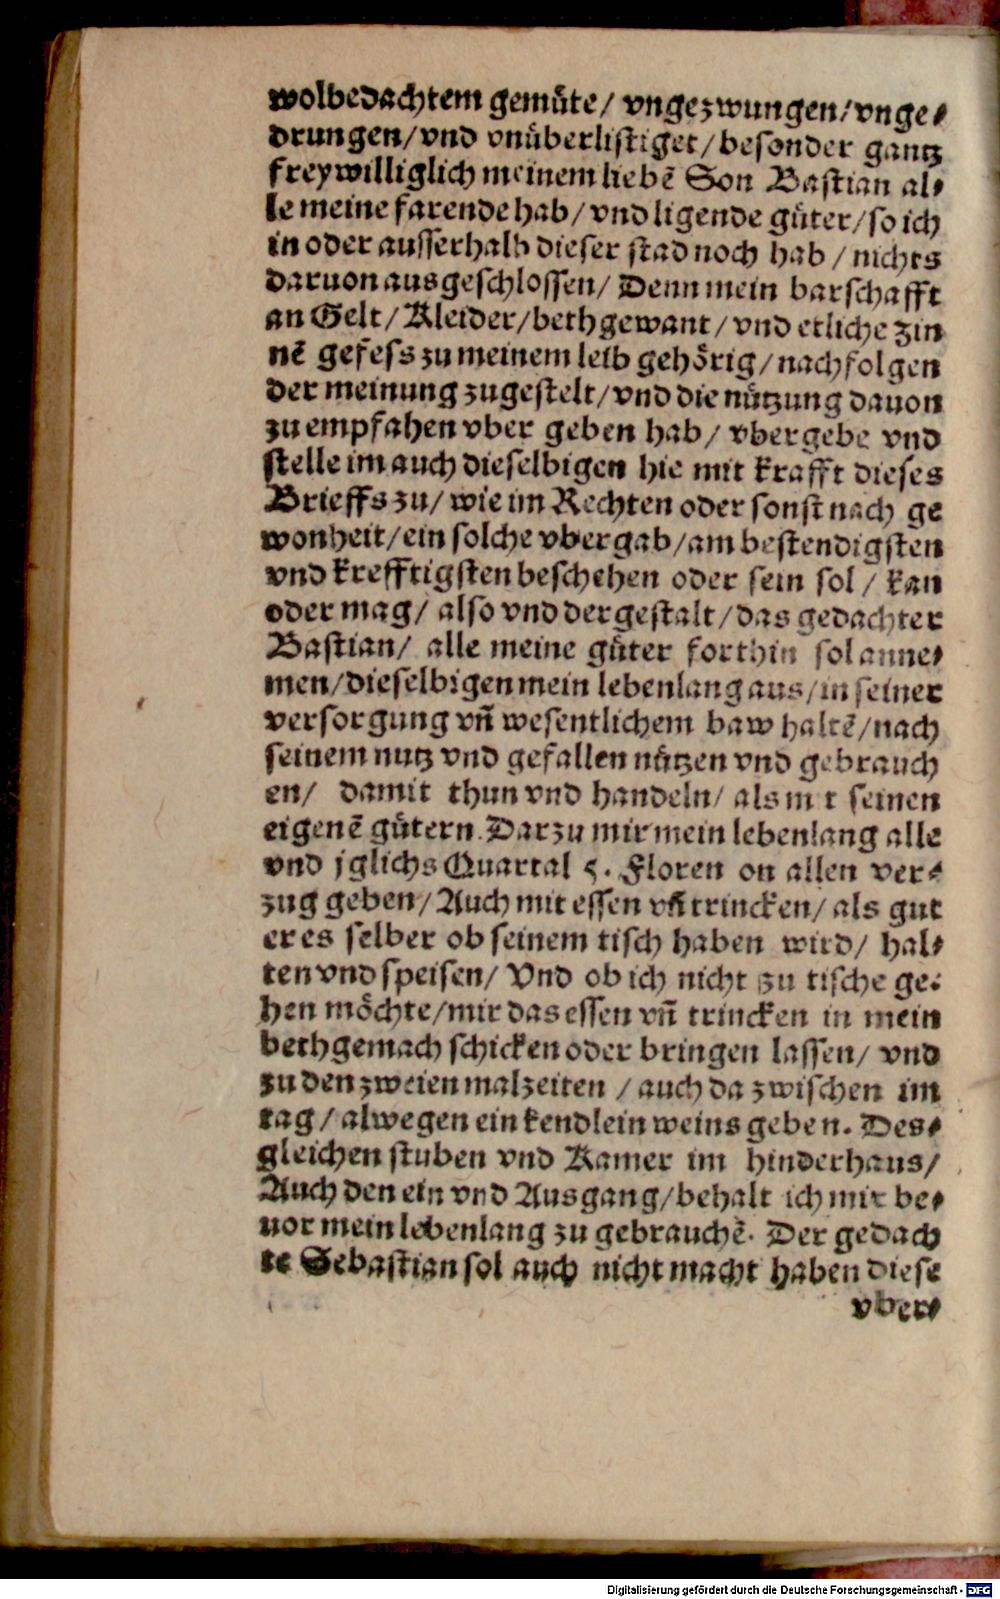 wolbedachtem gemuͤte/ vngezwungen/vnge⸗
drungen/vnd vnuͤberlistiget/besonder gantz
freywilliglich meinem liebẽ Son Bastian al⸗
le meine farende hab/vnd ligende guͤter/so ich
in oder ausserhalb dieser stad noch hab/nichts
daruon ausgeschlossen/Denn mein barschafft
an Gelt/Kleider/bethgewant/vnd etliche zin
nẽ gefess zu meinem leib gehoͤrig/nachfolgen
der meinung zugestelt/vnd die nuͤtzung dauon
zu empfahen vber geben hab/ vbergebe vnd
stelle im auch dieselbigen hie mit krafft dieses
Brieffs zu/wie im Rechten oder sonst nach ge
wonheit/ein solche vbergab/am bestendigsten
vnd krefftigsten beschehen oder sein sol/kan
oder mag/also vnd dergestalt/das gedachter
Bastian/ alle meine guͤter forthin sol anne⸗
men/dieselbigen mein lebenlang aus/in seiner
versorgung vñ wesentlichem baw haltẽ/nach
seinem nutz vnd gefallen nuͤtzen vnd gebrauch
en/ damit thun vnd handeln/als m t seinen
eigenẽ guͤtern. Darzu mir mein lebenlang alle
vnd jglichs Quartal 5. Floren on allen ver⸗
zug geben/Auch mit essen vñ trincken/als gut
er es selber ob seinem tisch haben wird/ hal⸗
ten vnd speisen/Vnd ob ich nicht zu tische ge⸗
hen moͤchte/mir das essen vñ trincken in mein
bethgemach schicken oder bringen lassen/ vnd
zu den zweien malzeiten /auch da zwischen im
tag/alwegen ein kendlein weins geben. Des⸗
gleichen stuben vnd Kamer im hinderhaus/
Auch den ein vnd Ausgang/behalt ich mir be⸗
uor mein lebenlang zu gebrauchẽ. Der gedach
te Sebastian sol auch nicht macht haben diese
vber⸗
Digitalisierung gefördert durch die Deutsche Forschungsgemeinschaft - DFG